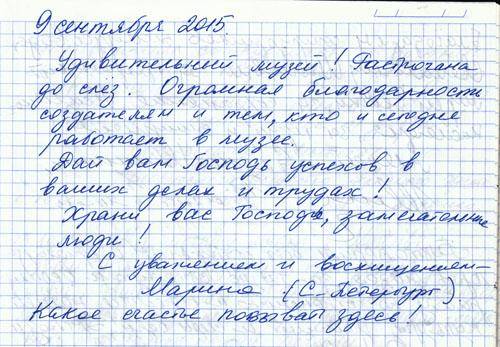 9 сентября 2015.
Удивительный музей! Растрогана
до слёз. Огромная благодарность
создателям и тем, кто и сегодня
работает в музее.
Дай вам Господь успехов в
ваших делах и трудах!
Храни вас Господь, замечательные
люди!
С уважением и восхищением –
Марина (С-Петербург)
Какое счастье побывать здесь!